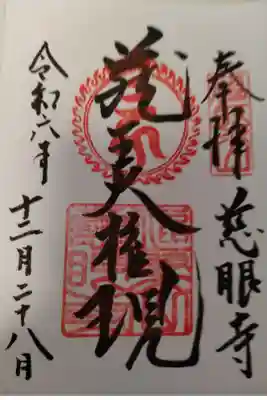 奉拝 慈眼寺
蔵王大権現
令和六年
十二月二十八日